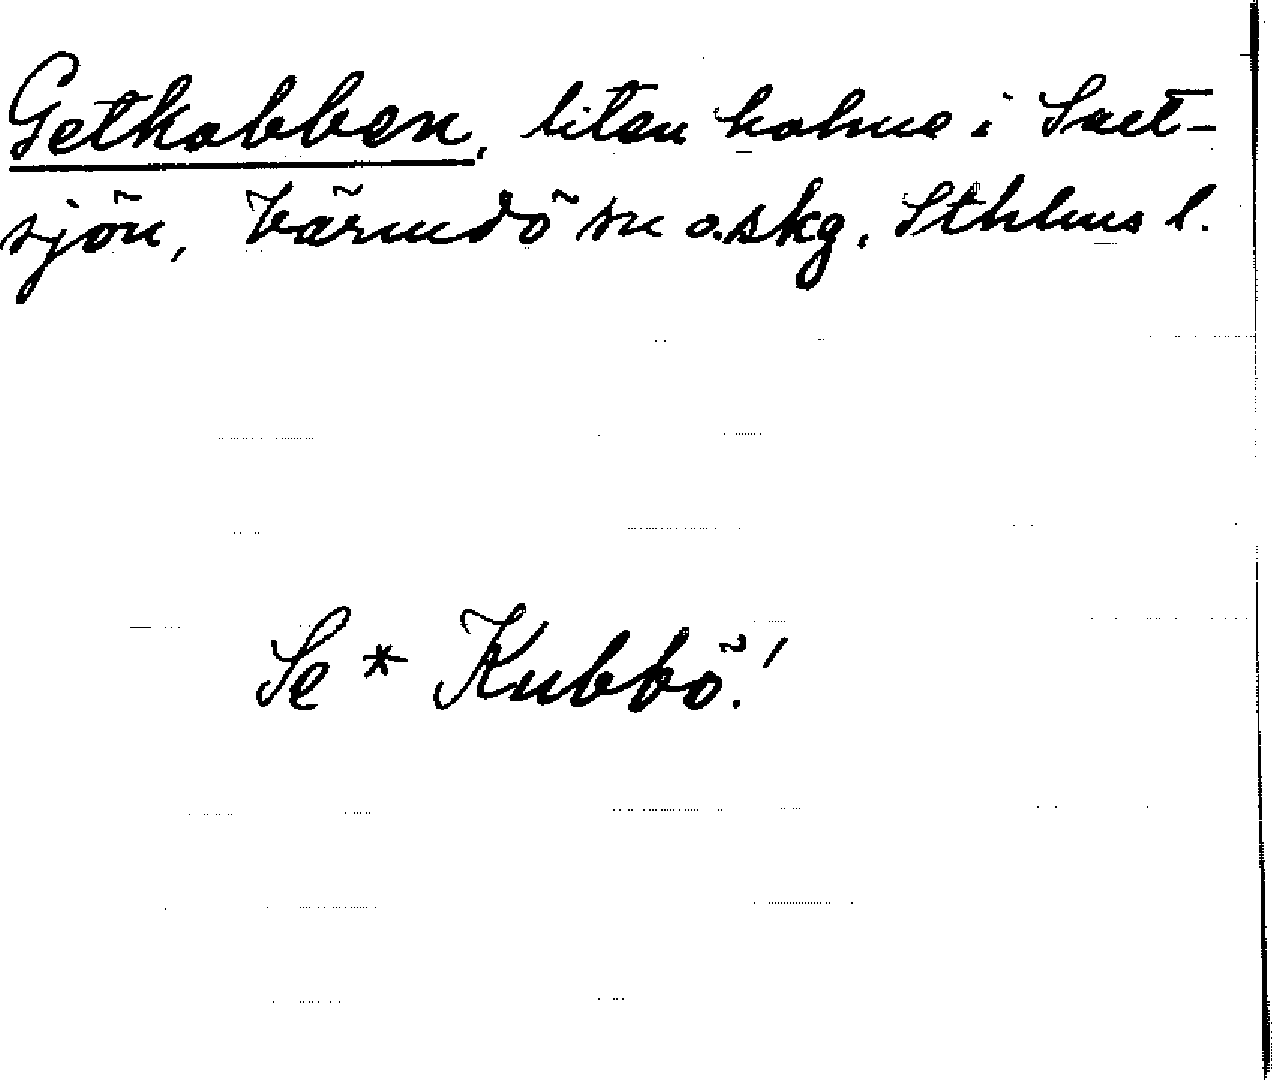 Getkobben, liten holme i Salt-
sjön, Värmdö sn o. skg, Sthlms l.
Se * Kubbö!